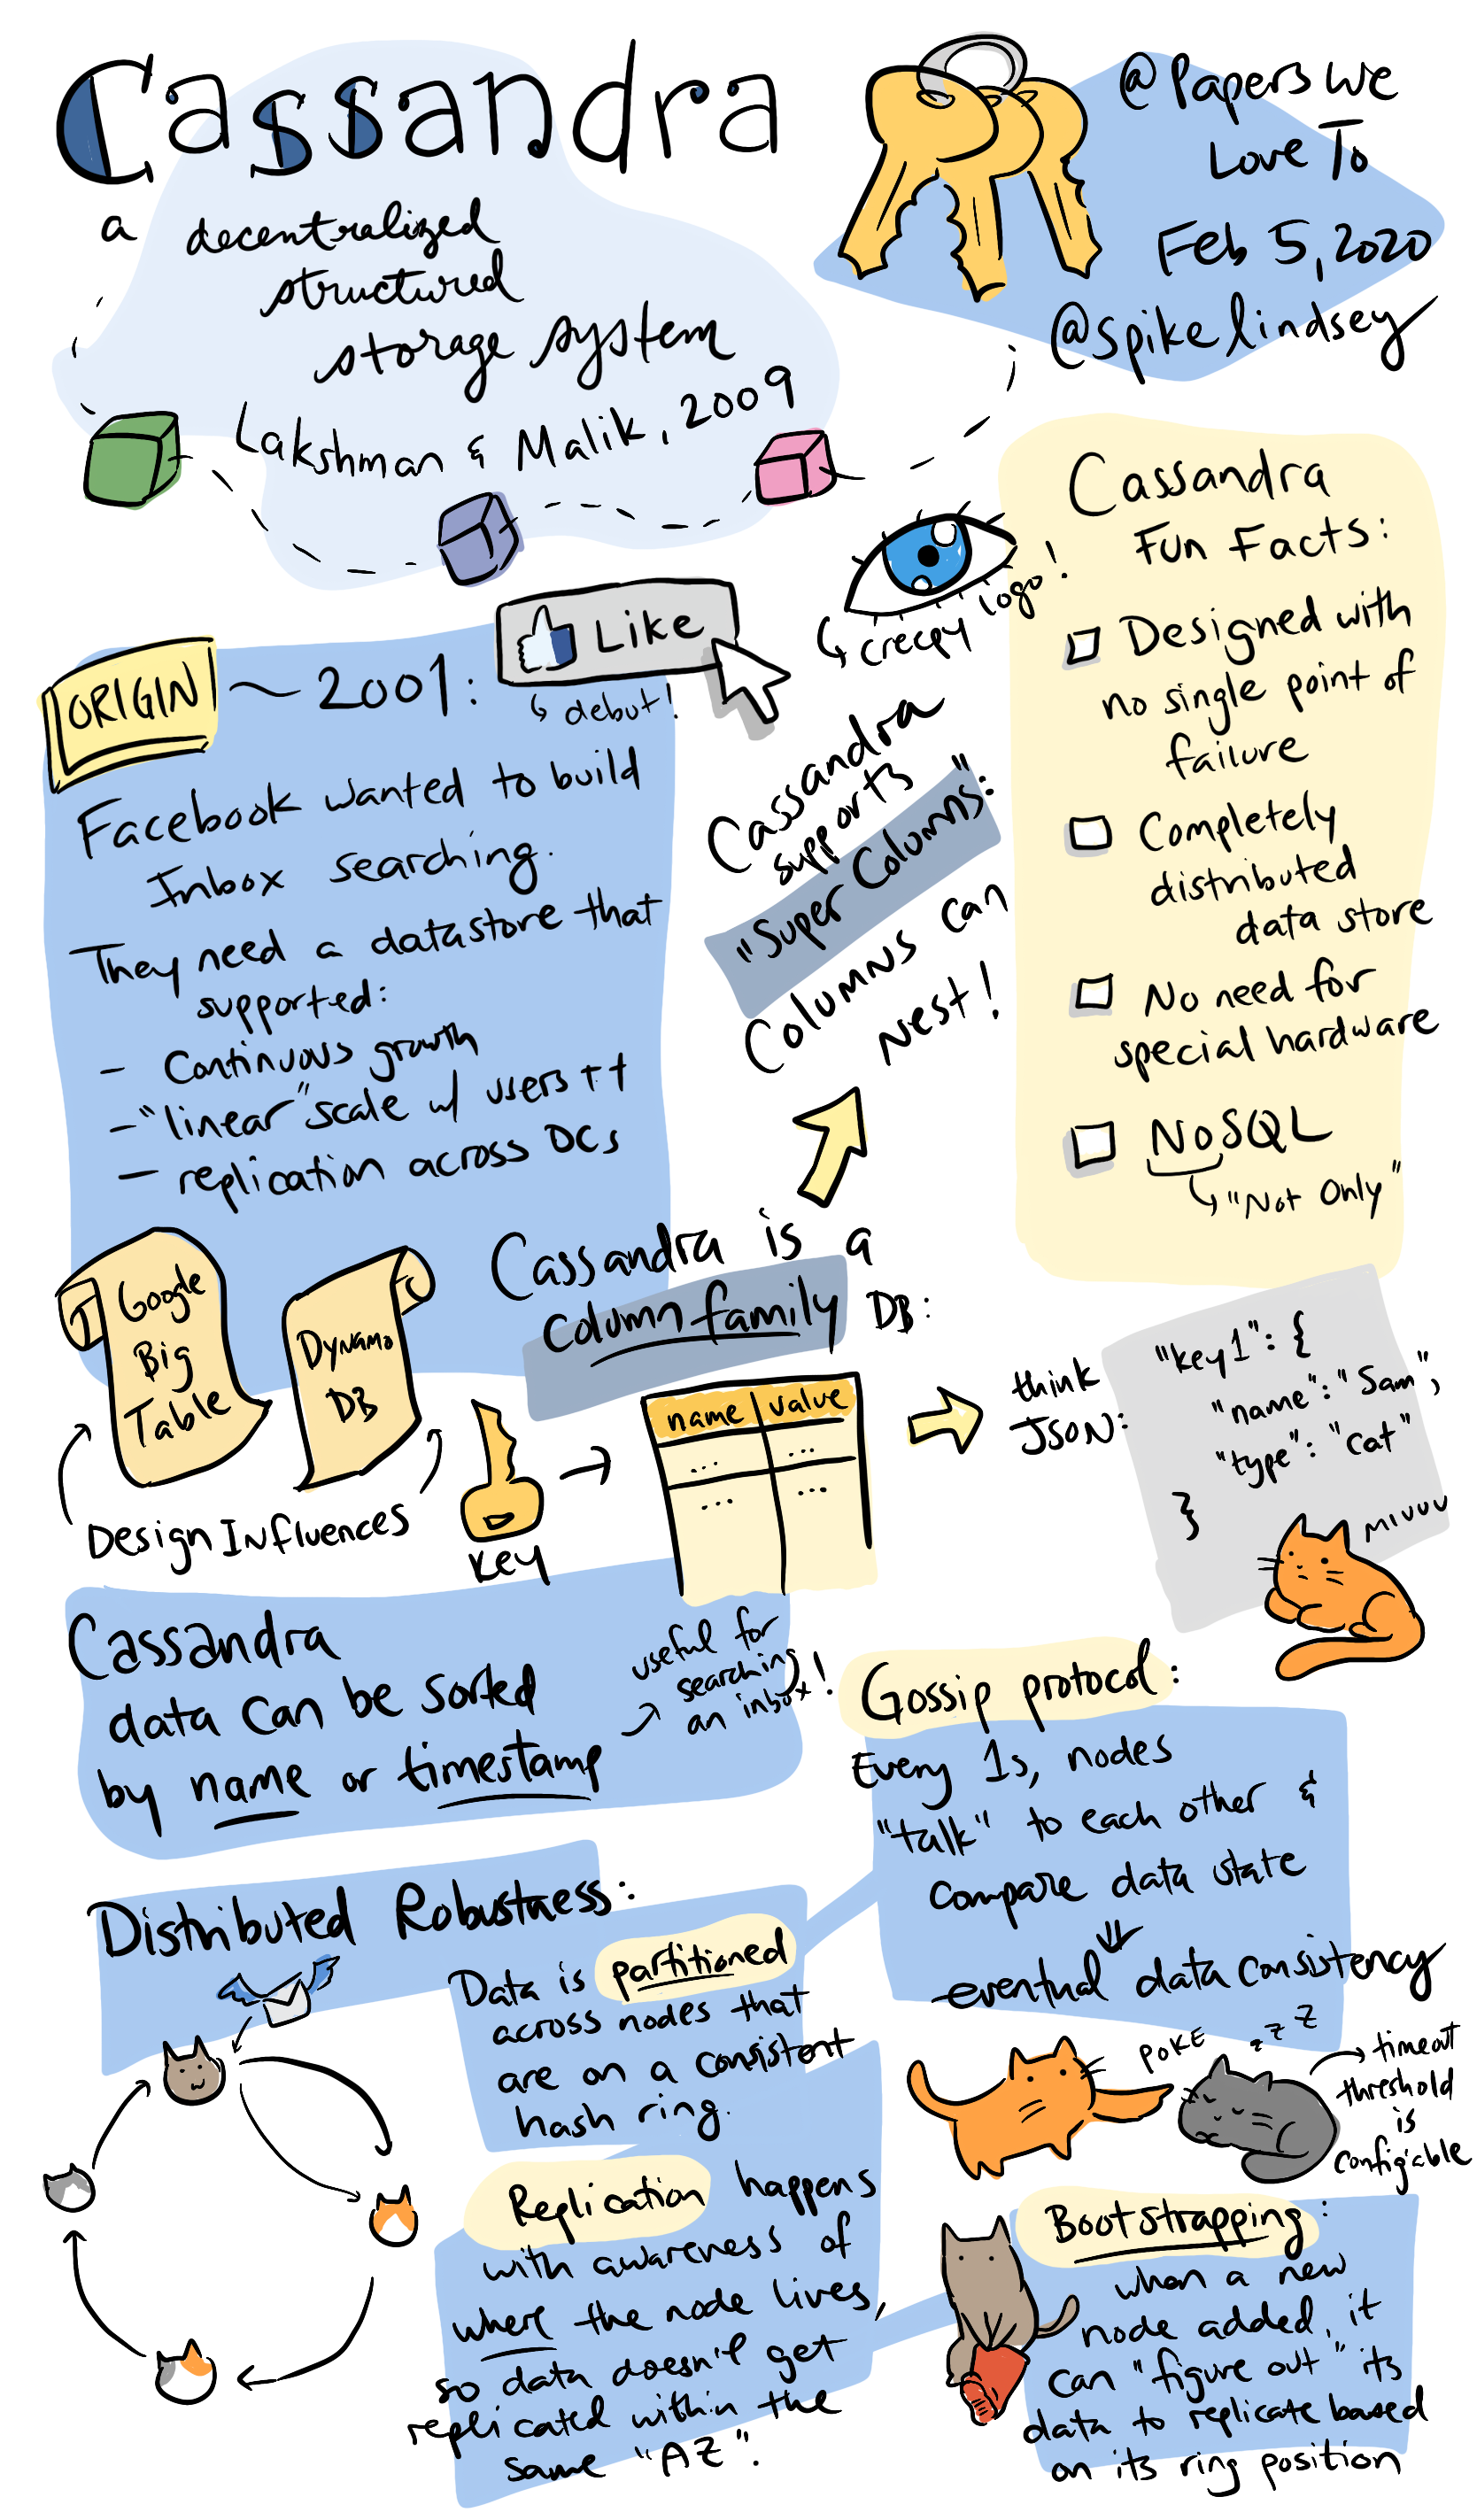 Cassandra
a decentralized
structured
storage system
Lakshman & Malik, 2009
@Papers We
Love To
Feb 5, 2020
@spikelindsey
creepy logo!
Cassandra
Fun Facts:
Designed with
no single point of
failure
Completely
distributed
data store
No need for
special hardware
NoSQL
"Not Only"
ORIGIN ~2009:
Like
debut!
Facebook wanted to build
Inbox searching.
They need a datastore that
supported:
- Continuous growth
- "linear" scale w/ users++
- replication across DCs
Cassandra
supports
"Super Columns":
Columns can
nest!
Google
Big
Table
Dynamo
DB
Design Influences
Cassandra is a
column family DB:
key
name value
... ...
... ...
think
JSON:
"key1": {
"name": "Sam",
"type": "cat"
}
MIUUU
Cassandra
data can be sorted
by name or timestamp
useful for
searching
an inbox!
Gossip protocol:
Every 1s, nodes
"talk" to each other &
compare data state
eventual data consistency
POKE
z z z
timeout
threshold
is
config'able
Distributed Robustness:
Data is partitioned
across nodes that
are on a consistent
hash ring.
Replication happens
with awareness of
where the node lives,
so data doesn't get
replicated within the
same "AZ".
Bootstrapping:
when a new
node added, it
can "figure out" its
data to replicate based
on its ring position